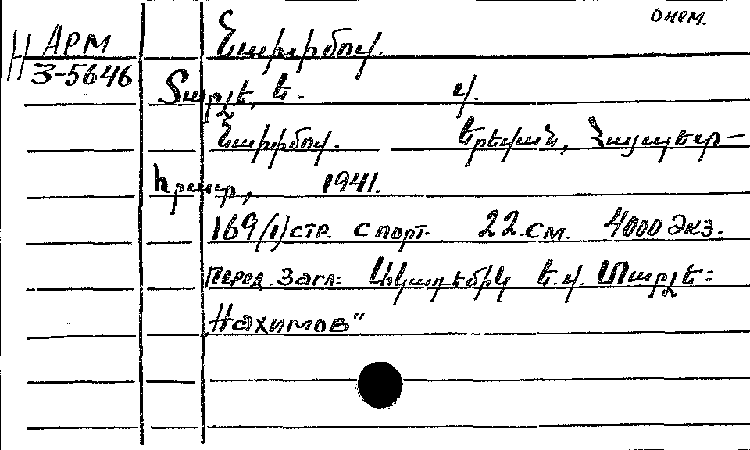 онем.
Н АРМ Նախիմով.
3-5646
Տարլե, Ե. վ.
Նախիմով. Երևան, Հայպետ-
հրատ, 1941.
169(1)стр. с порт. 22 см. 4000 экз.
Перед. Загл.: Ակադեմիկ Ե. վ. Տարլե:
Нахимов"